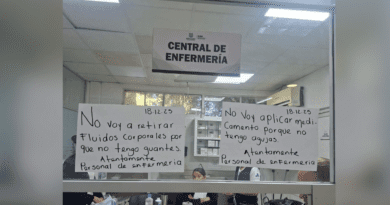 CENTRAL DE
ENFERMERÍA
18.12.25
No voy a retirar
Fluidos Corporales por
que no tengo guantes
Atentamente
Personal de enfermeria
18.12.25
No voy aplicar medi
camento porque no
tengo agujas
Atentamente
Personal de enfermeria